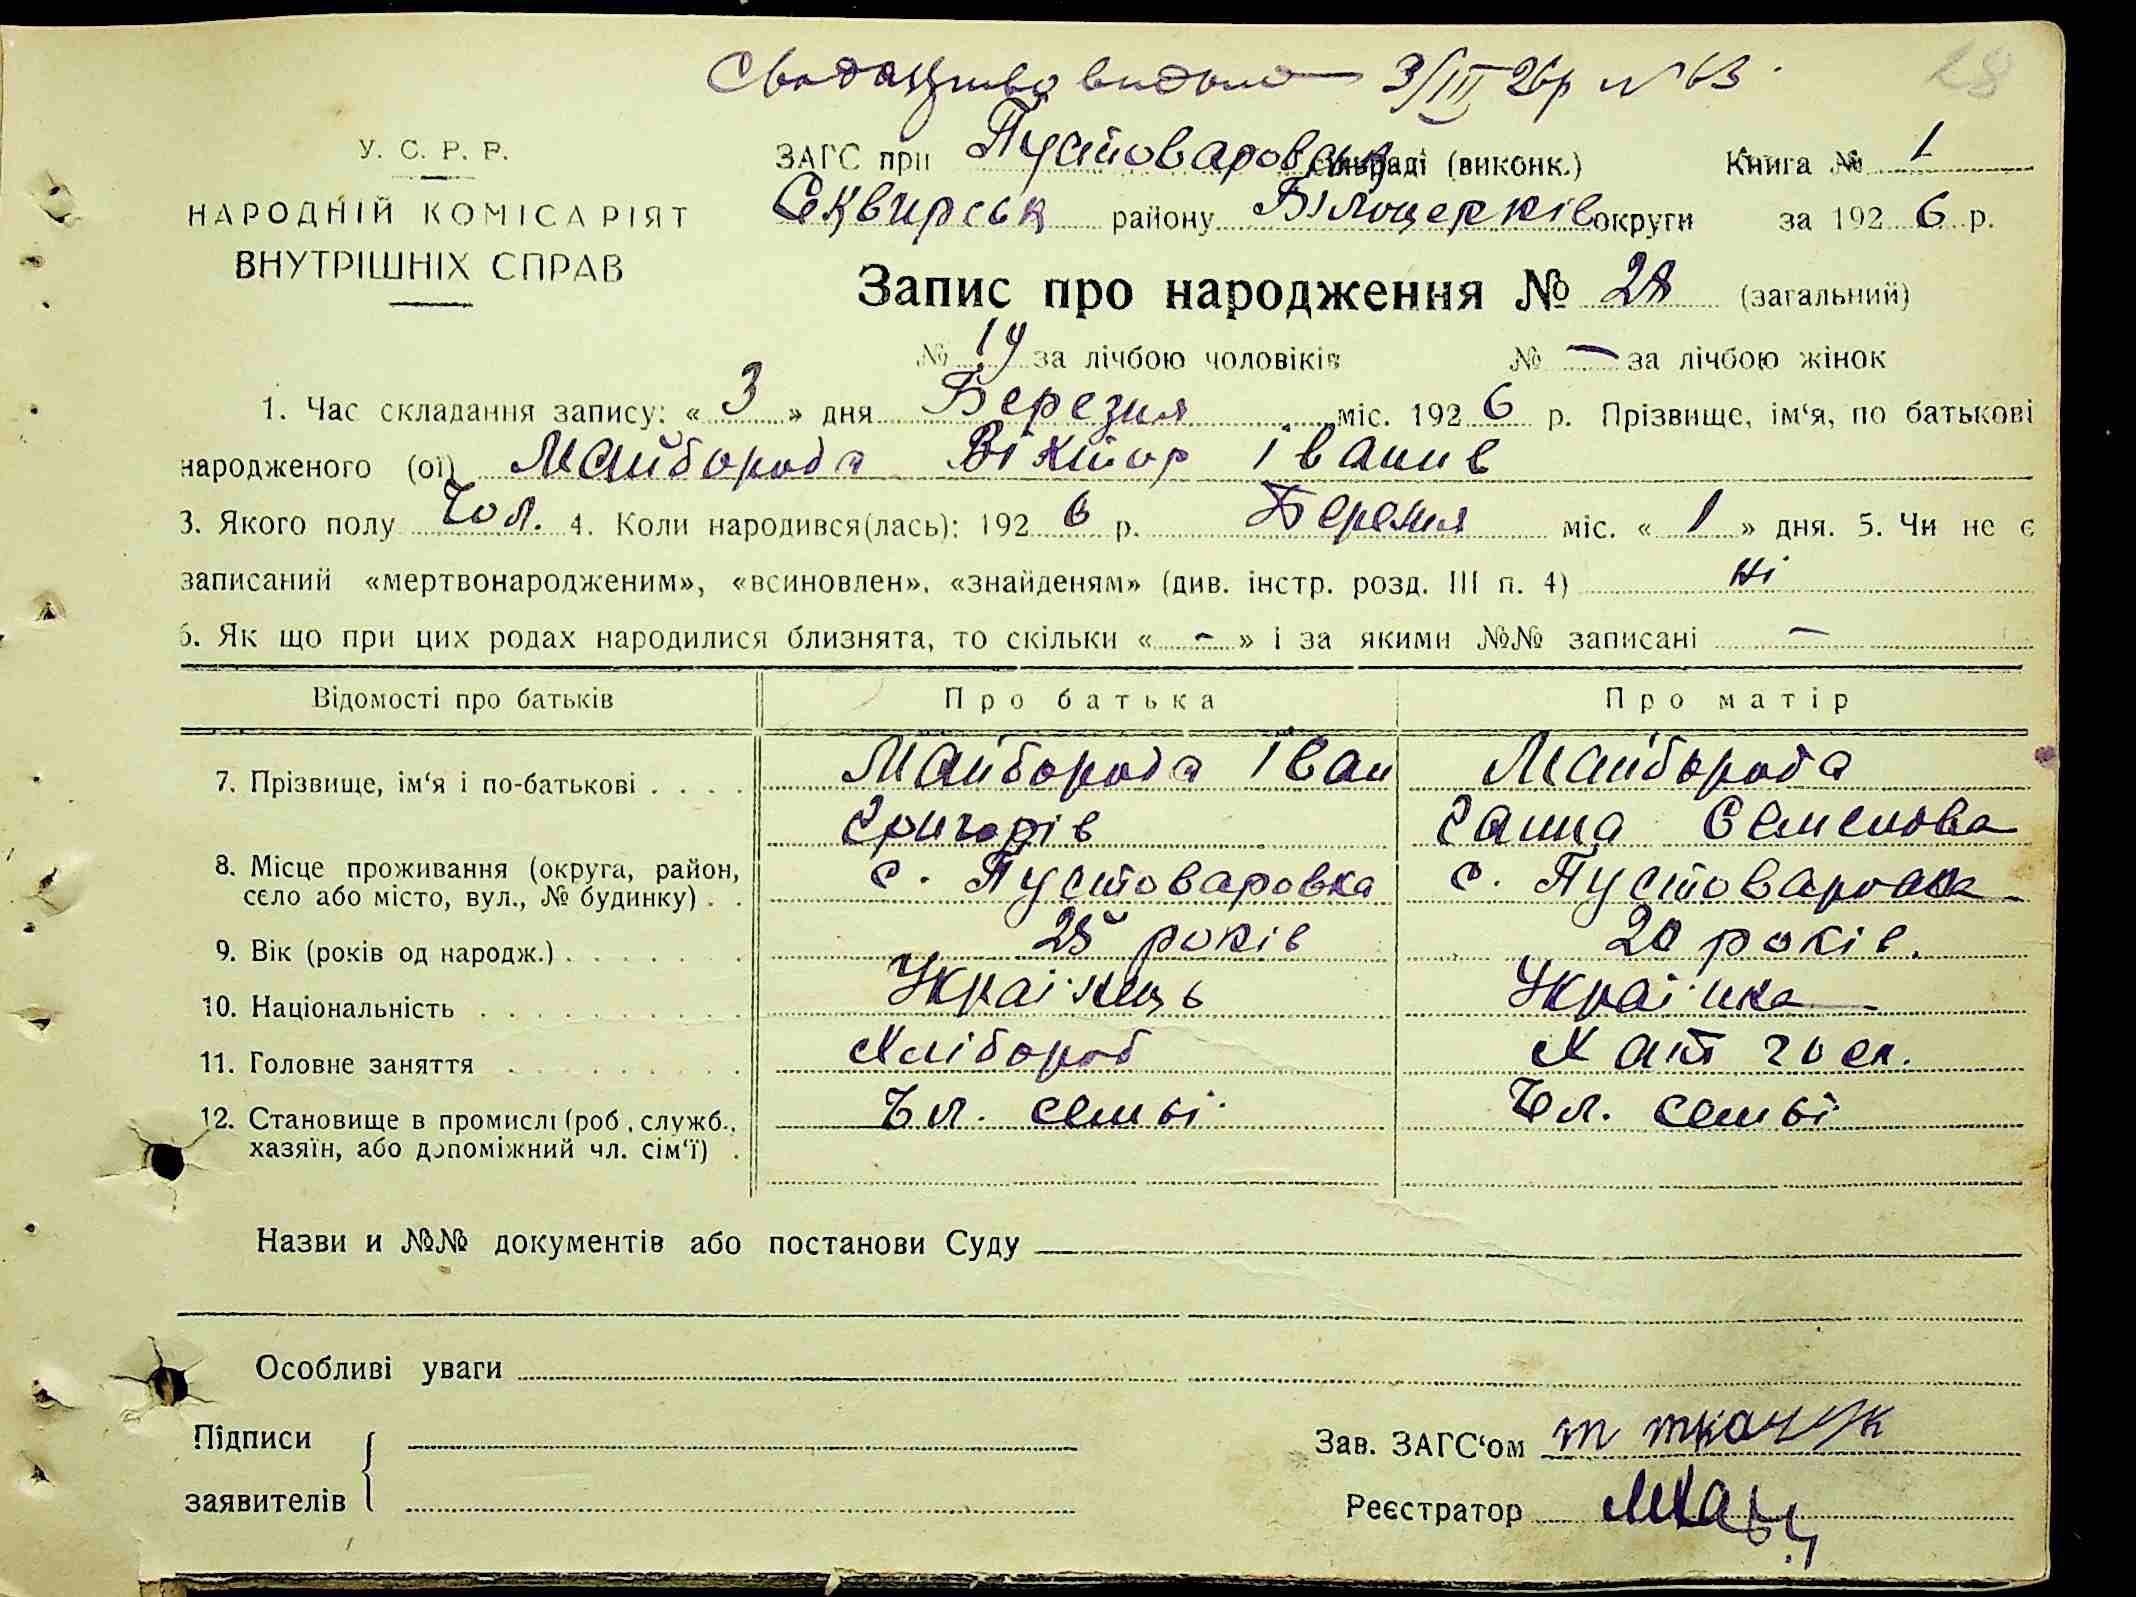 видано 3/III 26р № 63
28
У. С. Р. Р.
НАРОДНІЙ КОМІСАРІЯТ
ВНУТРІШНІХ СПРАВ
ЗАГС при Пустоваровськ сільраді (виконк.) Книга № 1
Сквирськ району Білоцерків округи за 1926 р.
Запис про народження № 28 (загальний)
№ 19 за лічбою чоловіків № — за лічбою жінок
1. Час складання запису: « 3 » дня Березня міс. 1926 р. Прізвище, ім‘я, по батькові
народженого (ої) Майборода Віктор Іванив
3. Якого полу Чол. 4. Коли народився(лась): 1926 р. Березня міс. « 1 » дня. 5. Чи не є
записаний «мертвонародженим», «всиновлен», «знайденям» (див. інстр. розд. III п. 4) ні
6. Як що при цих родах народилися близнята, то скільки « - » і за якими №№ записані —
Відомості про батьків Про батька Про матір
7. Прізвище, ім‘я і по-батькові . . . . Майборода Іван Майборода
Григорів Ганна Семенова
8. Місце проживання (округа, район, с. Пустоваровка с. Пустоваровка
село або місто, вул., № будинку) . .
9. Вік (років од народж.) . . . . . . . 25 років 20 років.
10. Національність . . . . . . . . . . Українць Українка
11. Головне заняття . . . . . . . . . Хлібороб Хатт госп.
12. Становище в промислі (роб., служб., Чл. семьї Чл. семьї
хазяїн, або допоміжний чл. сім‘ї) .
Назви и №№ документів або постанови Суду
Особливі уваги
Підписи
заявителів
Зав. ЗАГС‘ом т ткачук
Реєстратор